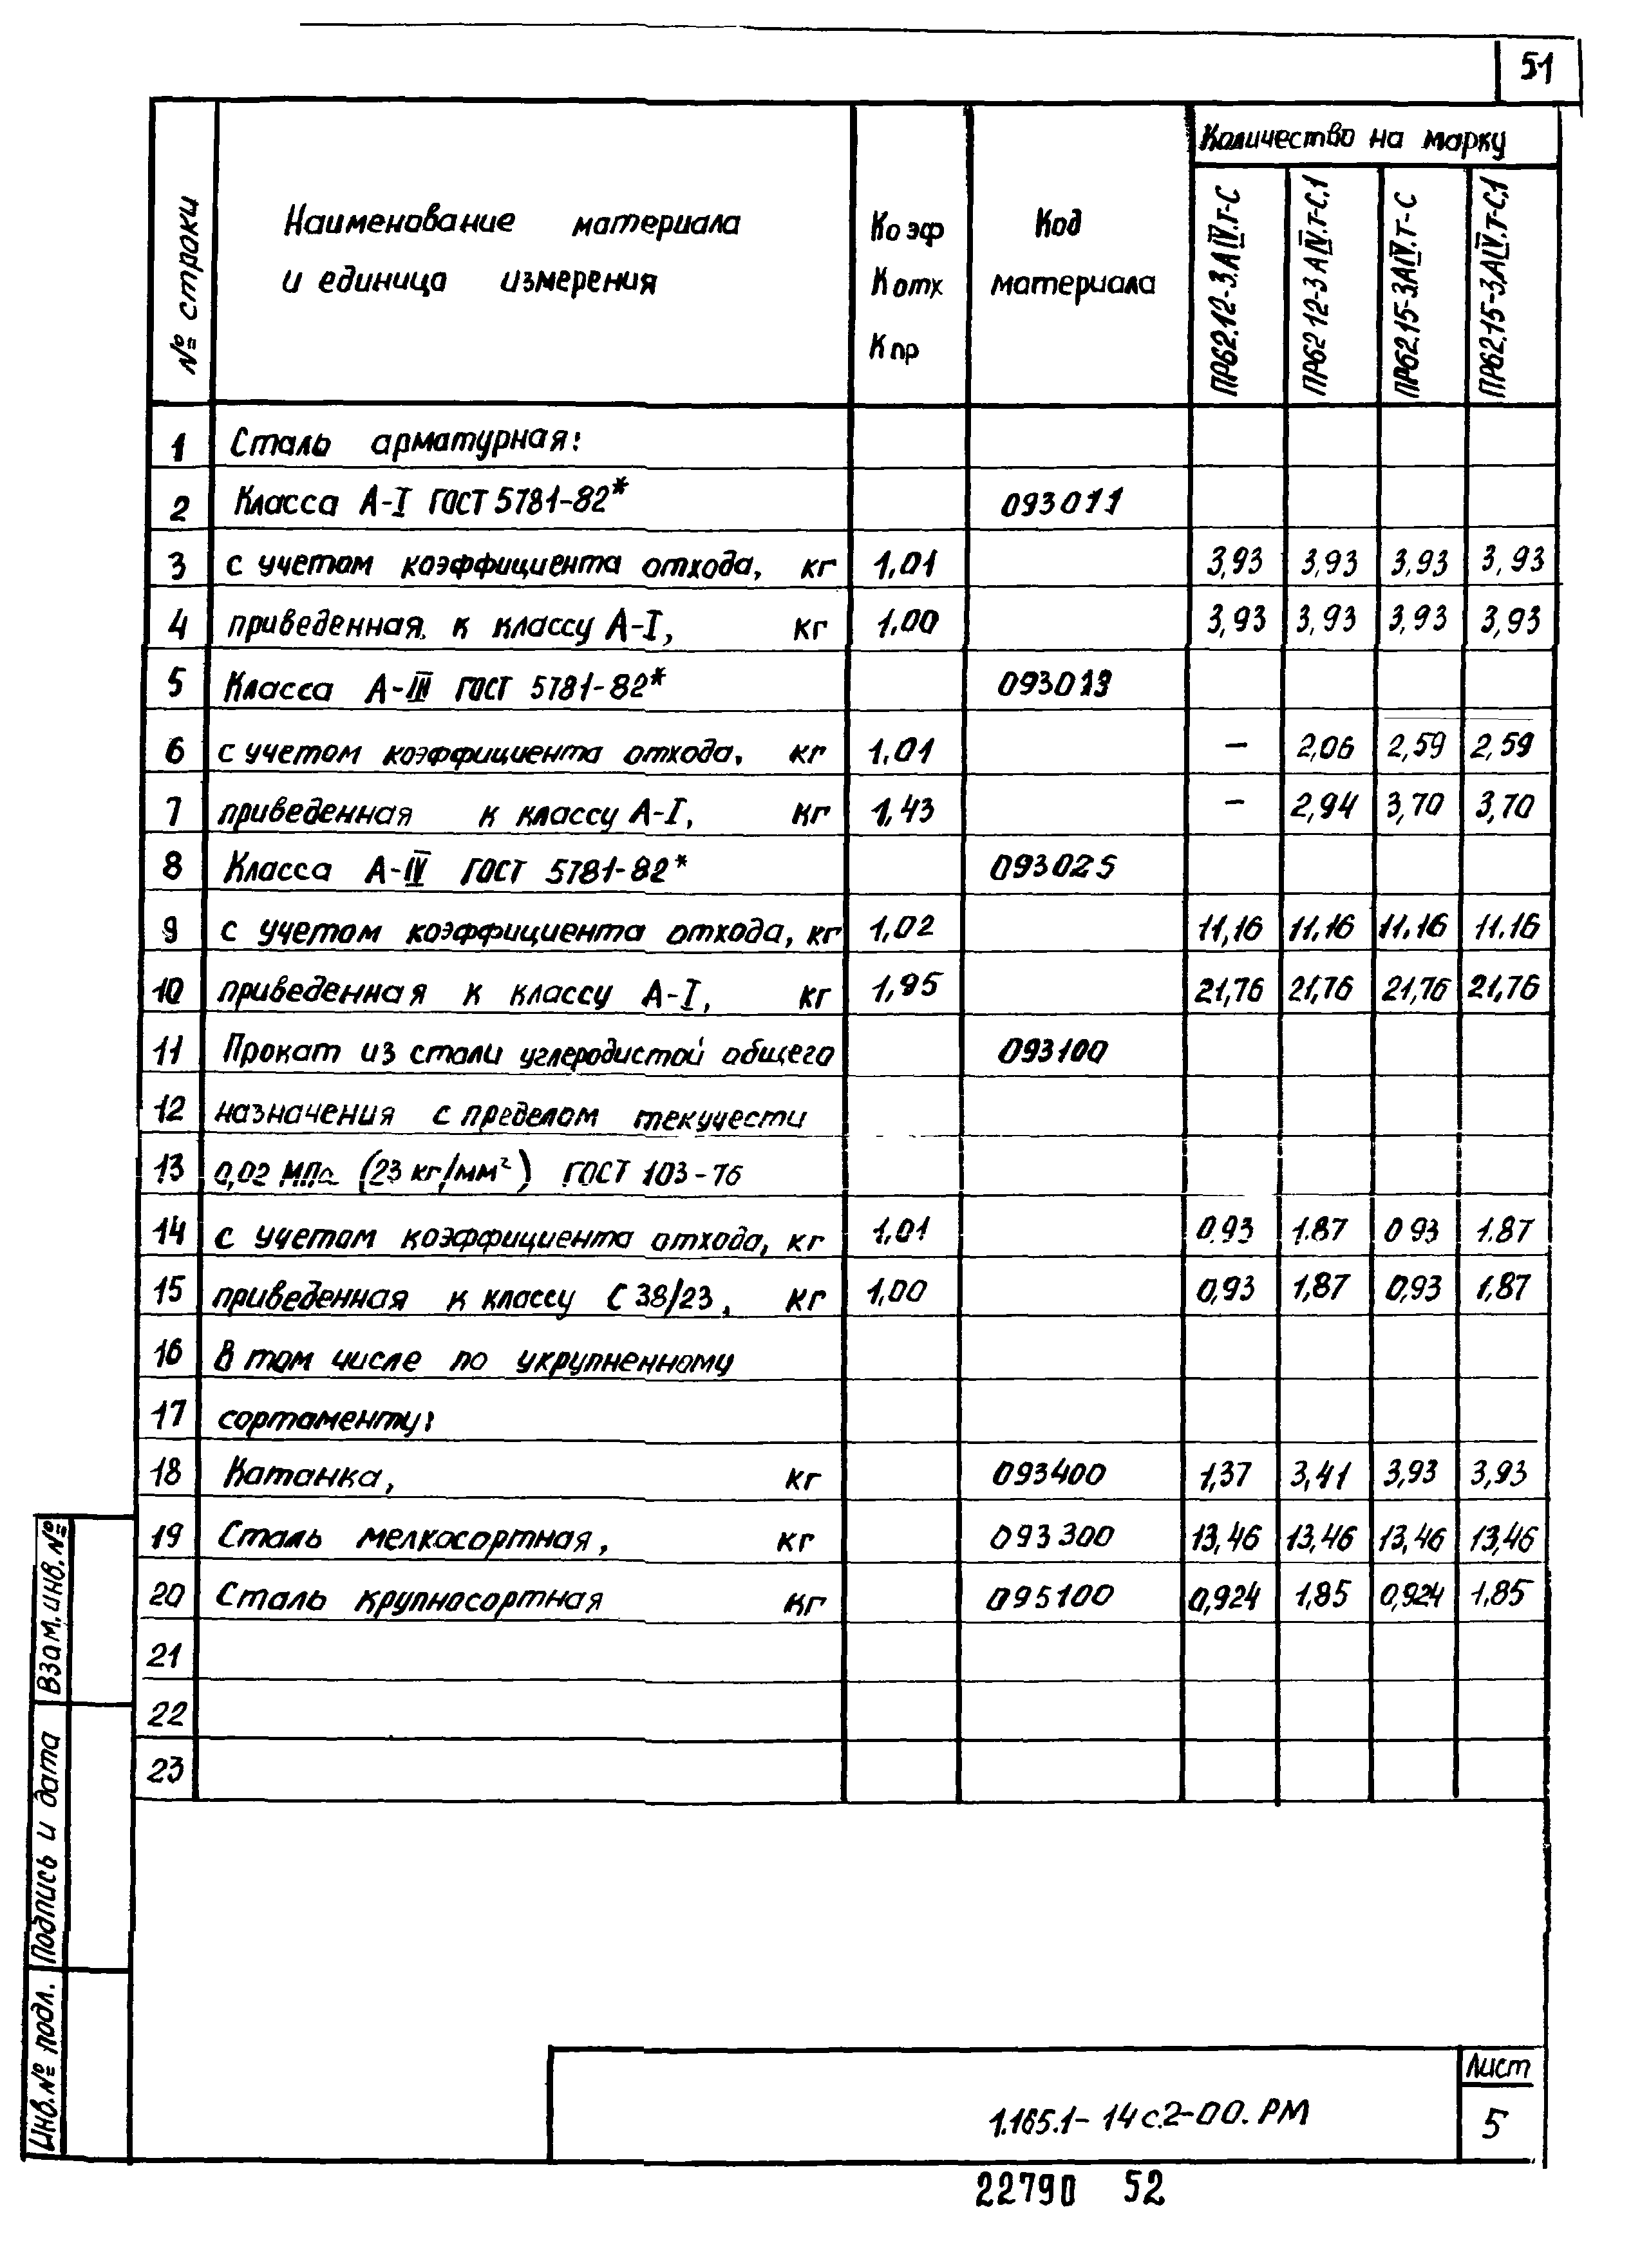 51
№ строки
Наименование материала
и единица измерения
Коэф
Котх
Кпр
Код
материала
Количество на марку
ПРБ62.12-3.АIV.т-С
ПРБ62 12-3 АIV.т-С.1
ПРБ62.15-3АIV.т-С
ПРБ62.15-3АIV.т-С.1
1 Сталь арматурная:
2 Класса А-I ГОСТ 5781-82* 093011
3 с учетом коэффициента отхода, кг 1,01 3,93 3,93 3,93 3,93
4 приведенная к классу А-I, кг 1,00 3,93 3,93 3,93 3,93
5 Класса А-III ГОСТ 5781-82* 093013
6 с учетом коэффициента отхода, кг 1,01 – 2,06 2,59 2,59
7 приведенная к классу А-I, кг 1,43 – 2,94 3,70 3,70
8 Класса А-IV ГОСТ 5781-82* 093025
9 с учетом коэффициента отхода, кг 1,02 11,16 11,16 11,16 11.16
10 приведенная к классу А-I, кг 1,95 21,76 21,76 21,76 21,76
11 Прокат из стали углеродистой общего 093100
12 назначения с пределом текучести
13 0,02 МПа (23 кг/мм²) ГОСТ 103-76
14 с учетом коэффициента отхода, кг 1,01 0.93 1.87 0 93 1.87
15 приведенная к классу С 38/23, кг 1,00 0,93 1,87 0,93 1,87
16 В том числе по укрупненному
17 сортаменту:
18 Катанка, кг 093400 1,37 3,41 3,93 3,93
19 Сталь мелкосортная, кг 093300 13,46 13,46 13,46 13,46
20 Сталь крупносортная кг 095100 0,924 1,85 0,924 1,85
21
22
23
Взам.инв.№
Подпись и дата
Инв.№ подл.
1.165.1-14с.2-00.РМ
Лист
5
22790 52